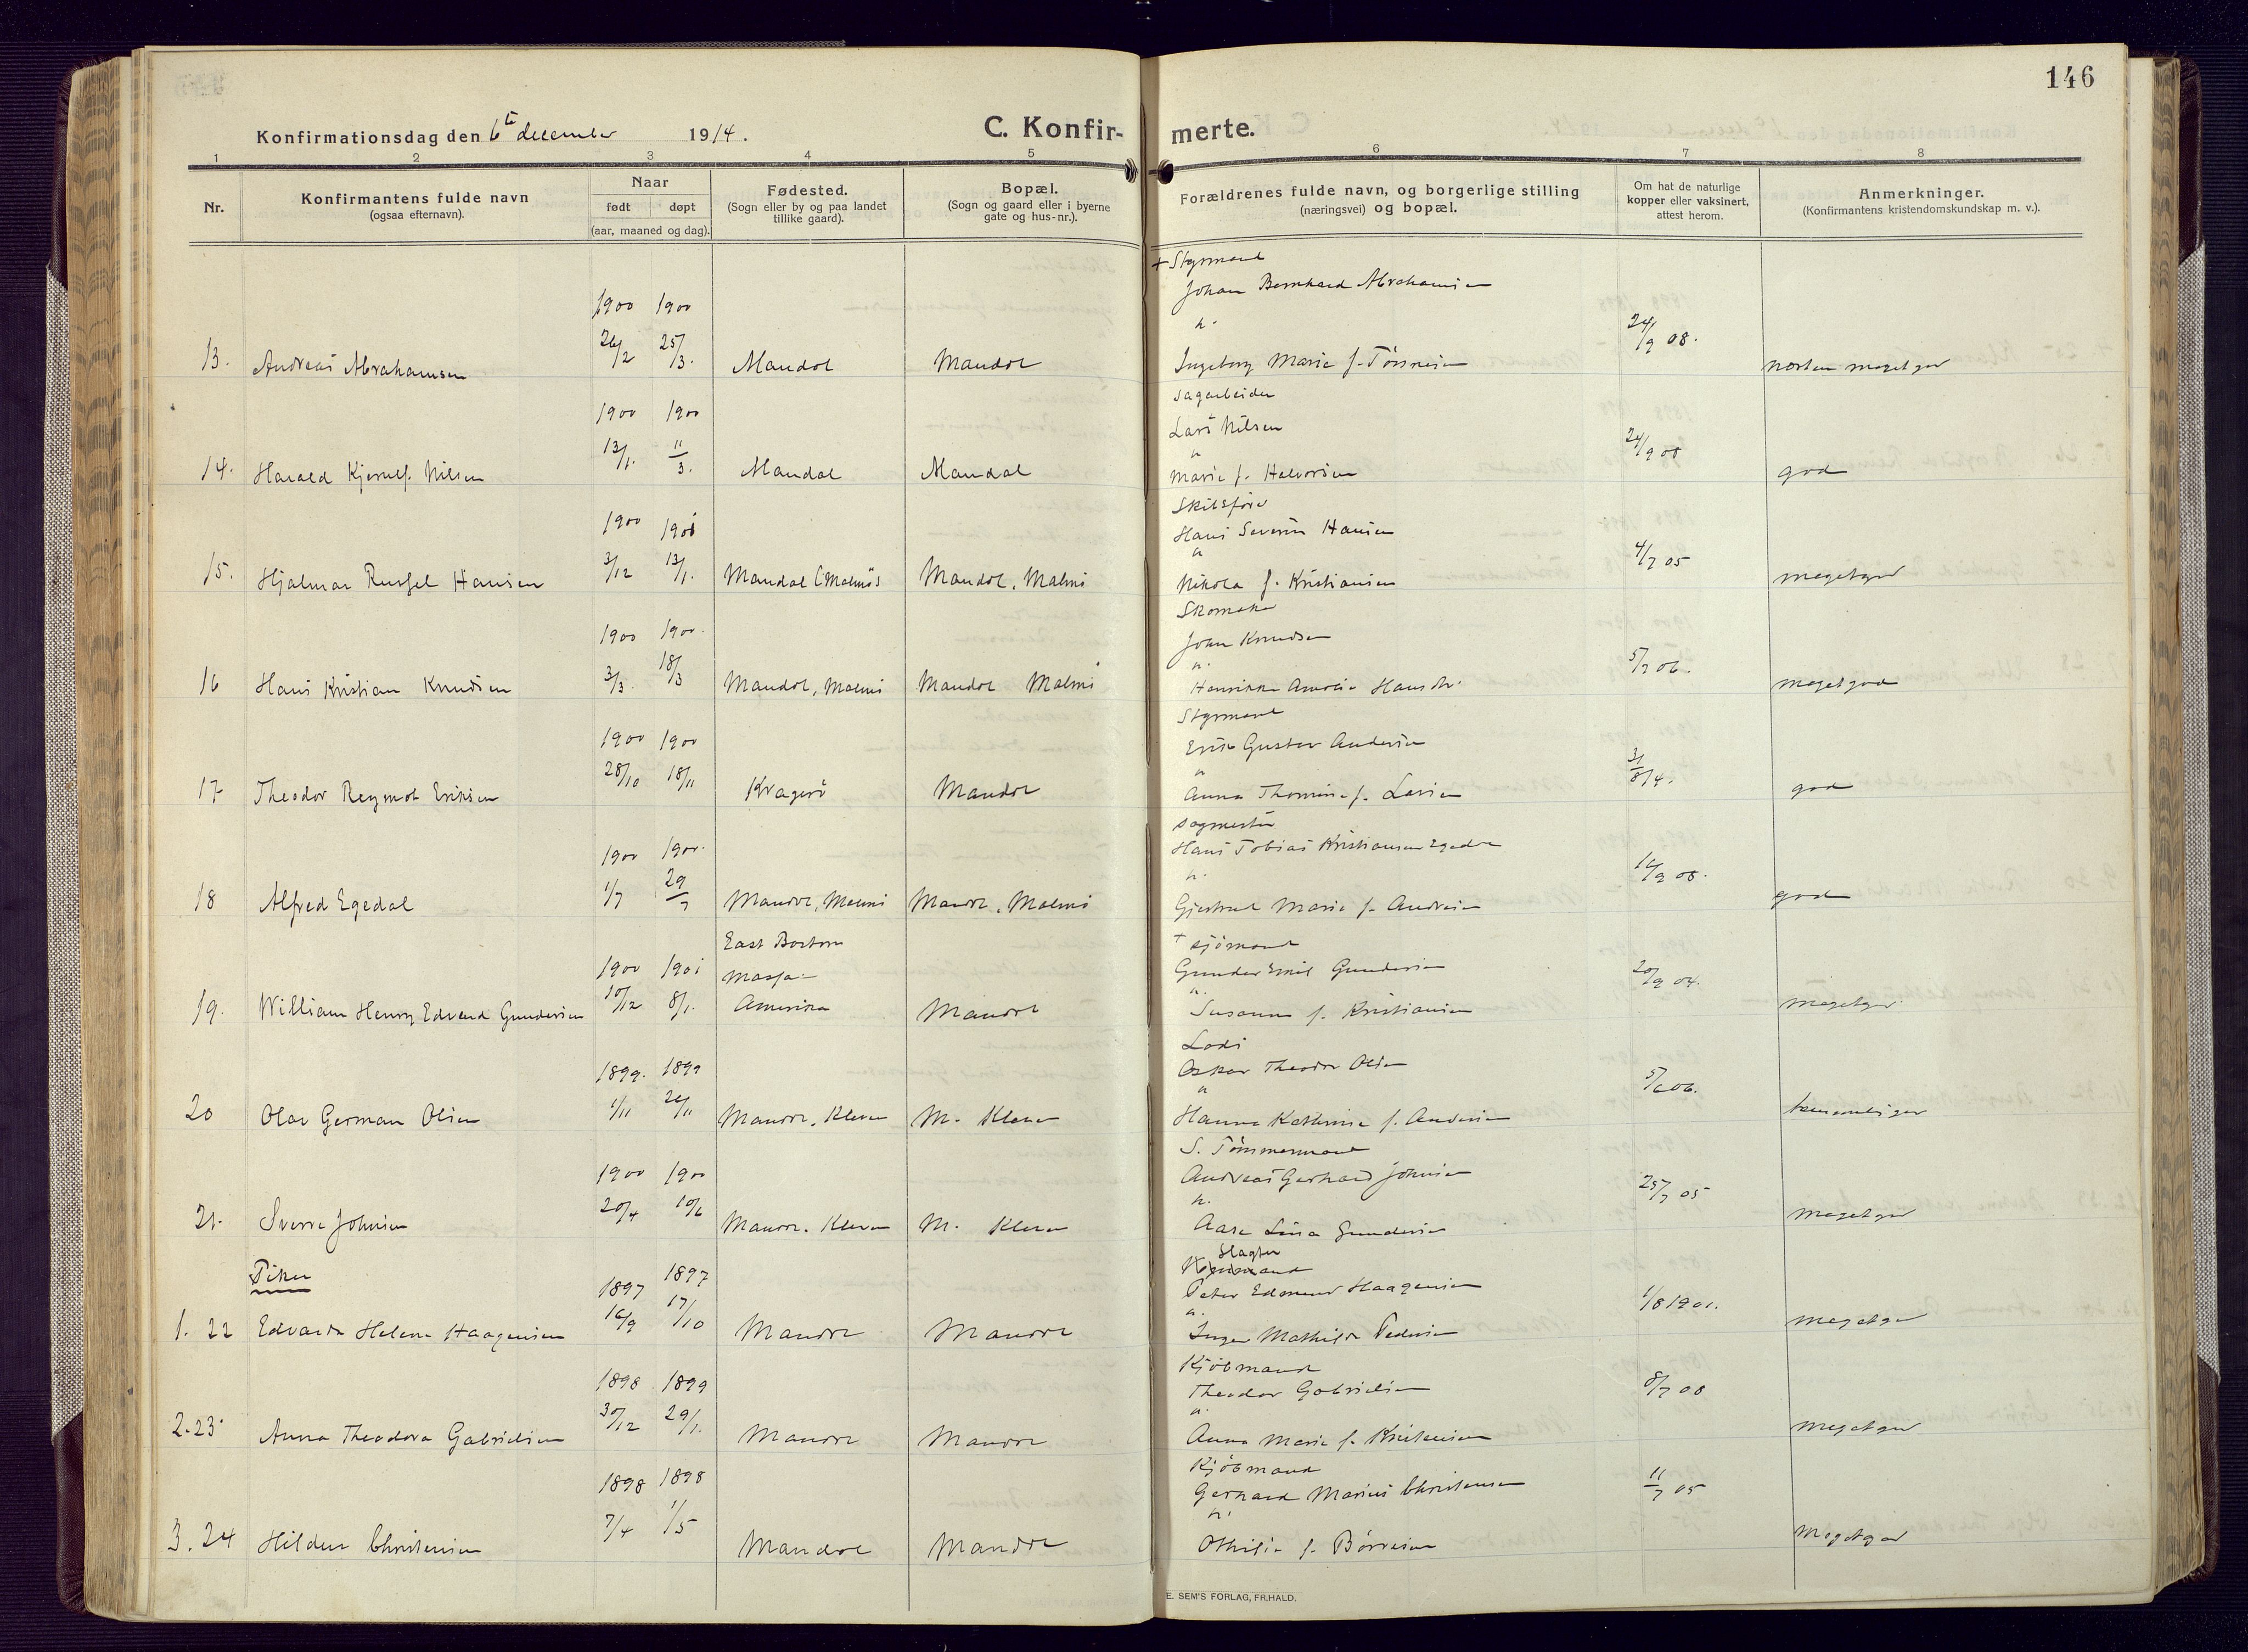 146
Konfirmationsdag den 6te december 1914.
C. Konfir-
merte.
1 2 3 4 5 6 7 8
Nr.
Konfirmantens fulde navn
(ogsaa efternavn).
Naar
født døpt
(aar, maaned og dag).
Fødested.
(Sogn eller by og paa landet
tillike gaard).
Bopæl.
(Sogn og gaard eller i byerne
gate og hus-nr.).
Forældrenes fulde navn, og borgerlige stilling
(næringsvei) og bopæl.
Om hat de naturlige
kopper eller vaksinert,
attest herom.
Anmerkninger.
(Konfirmantens kristendomskundskap m. v.).
+ Styrmand
Johan Bernhard Abrahamsen
1900 1900
n.
13. Andreas Abrahamsen 26/2 25/3. Mandal Mandal Ingeborg Marie f. Tönnesen 24/9 08. næsten meget god
Sagarbeider
1900 1900 Lars Nilsen
n
14. Harald Kjerulf Nilsen 13/1. 11/3. Mandal Mandal Marie f. Halvorsen 24/9 08 god
Skibsfører
1900 1901 Hans Severin Hansen
n
15. Hjalmar Hansen 3/12 13/1. Mandal (Malmö) Mandal, Malmö Nikola f. Kristiansen 4/7 05 megetgod
Skomaker
1900 1900. John Knudsen
n.
16 Hans Kristian Knudsen 3/3. 18/3 Mandal, Malmö Mandal Malmö Amalie Hansdtr. 5/7 06. megetgod
Styrmand
1900 1900 Erik Gustav Andersen
n
17 Theodor Eriksen 28/10 18/11 Kragerö Mandal Anna Thomine f. Larsen god
Sagmester
1900 1900. Hans Tobias Kristiansen Egedal
n.
18 Alfred Egedal 1/7 29/7 Mandal, Malmö Mandal, Malmö Marie f. Andersen 16/9 08. god
East Boston
+ sjömand
1900 1901 Massa- Gunder Emil Gundersen
n.
19. William Henry Edvard Gundersen 10/12 8/1. Amerika Mandal Susanne f. Kristiansen 20/9 04. megetgod
Lods
1899. 1899 Oskar Theodor Olsen
n
20 Olav German Olsen 1/11 26/11 Mandal, Kleven M. Kleven Hanna Kathrine f. Andersen 5/6 06. temmeliggod
S. Tömmermand
1900 1900 Andreas Gerhard Johnsen
n.
21. Sverre Johnsen 20/4 10/6 Mandal. Kleven M. Kleven Aase Lina Gundersen 25/7 05 megetgod
Piker
Slagter
1897 1897 Peter Edmund Haagensen
n.
1. 22 Edvarda Helene Haagensen 16/9 17/10 Mandal Mandal Inger Mathilde Pedersen 1/8 1901. megetgod
Kjöbmand
1898 1899 Theodor Gabrielsen
n.
2. 23 Anna Theodora Gabrielsen 30/12 29/1. Mandal Mandal Anna Marie f. Kristensen 8/7 08 megetgod
Kjöbmand
1898 1898 Gerhard Marius Christensen
n.
3. 24 Hildur Christensen 7/4 1/5 Mandal Mandal Othilie f. Börresen 11/7 05 megetgod
E. SEM'S FORLAG, FR.HALD.